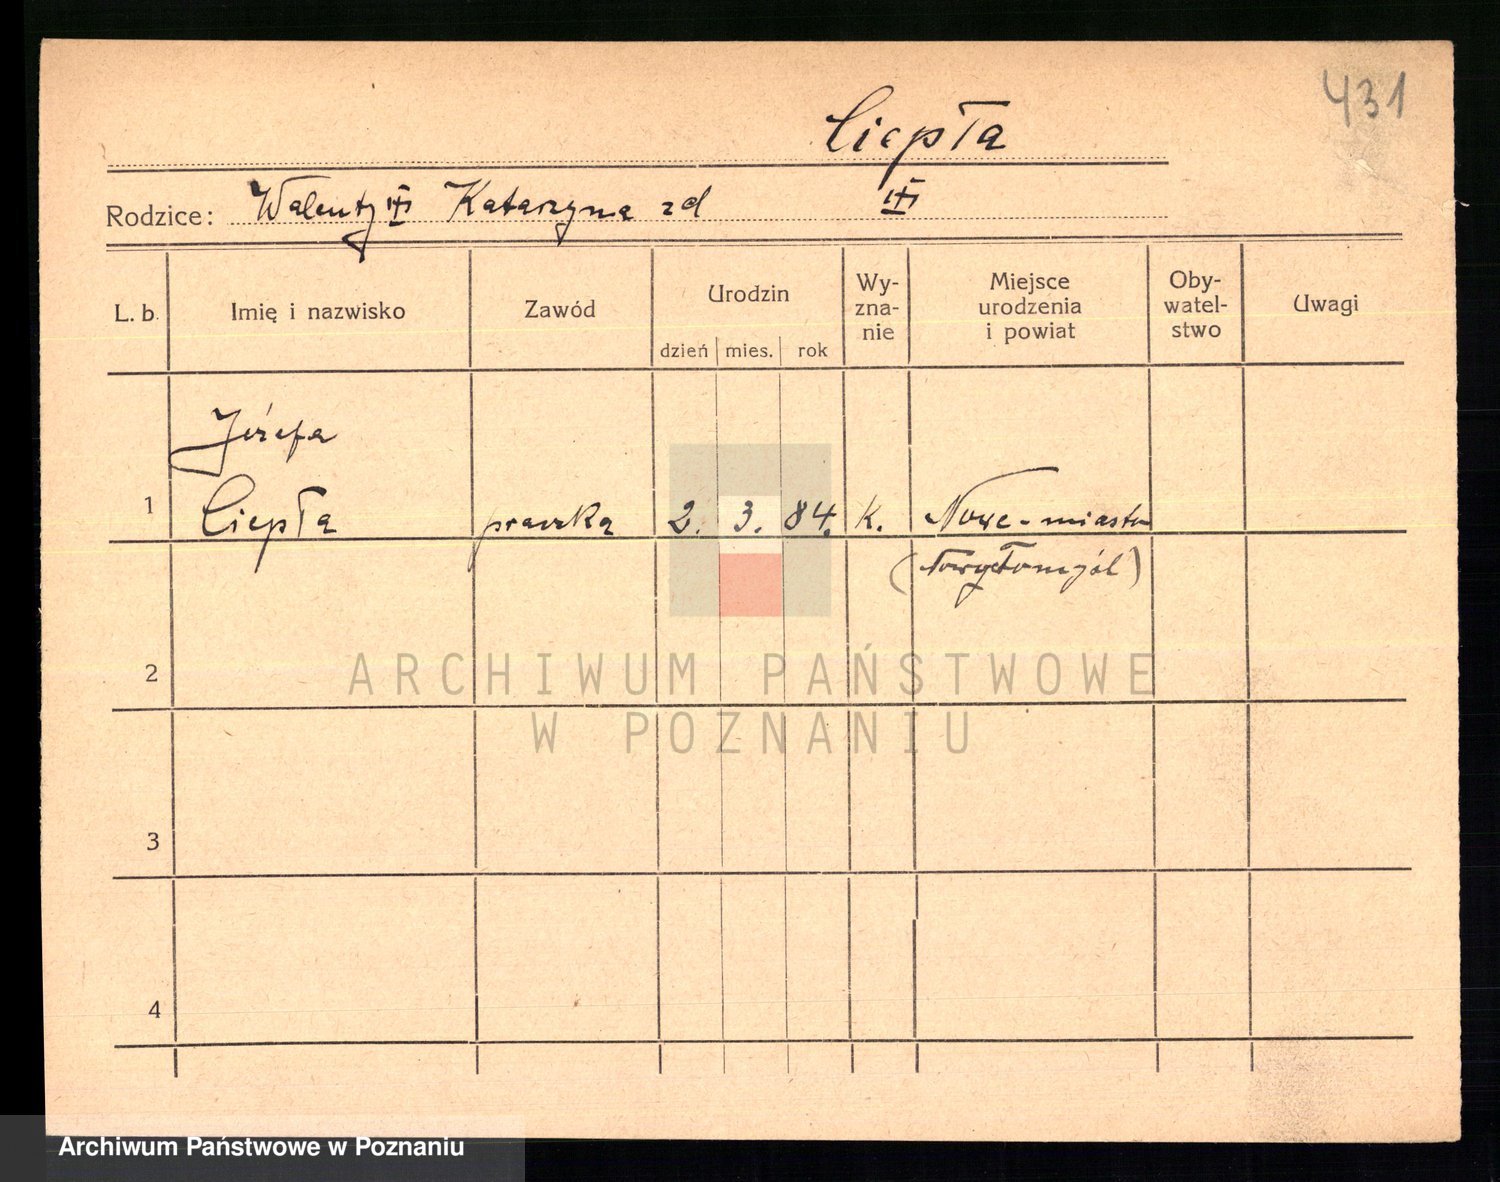 431
Ciepła
Rodzice: Walenty Katarzyna zd
L. b. Imię i nazwisko Zawód Urodzin dzień mies. rok Wy-znanie Miejsce urodzenia i powiat Oby-watel-stwo Uwagi
Józefa
1 Ciepła praczka 2. 3. 84. K. Nowe-miasto
(Nowy Tomyśl)
2
ARCHIWUM PAŃSTWOWE
W POZNANIU
3
4
Archiwum Państwowe w Poznaniu